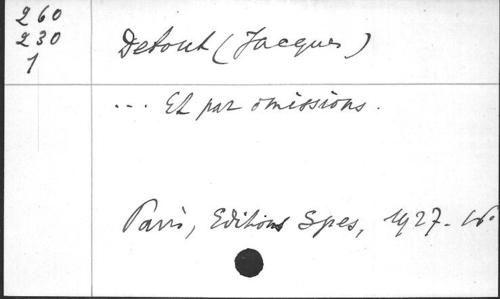 260
230
1
Detout (Jacques)
... Et par omissions.
Paris, Editions Spes, 1927. 16°